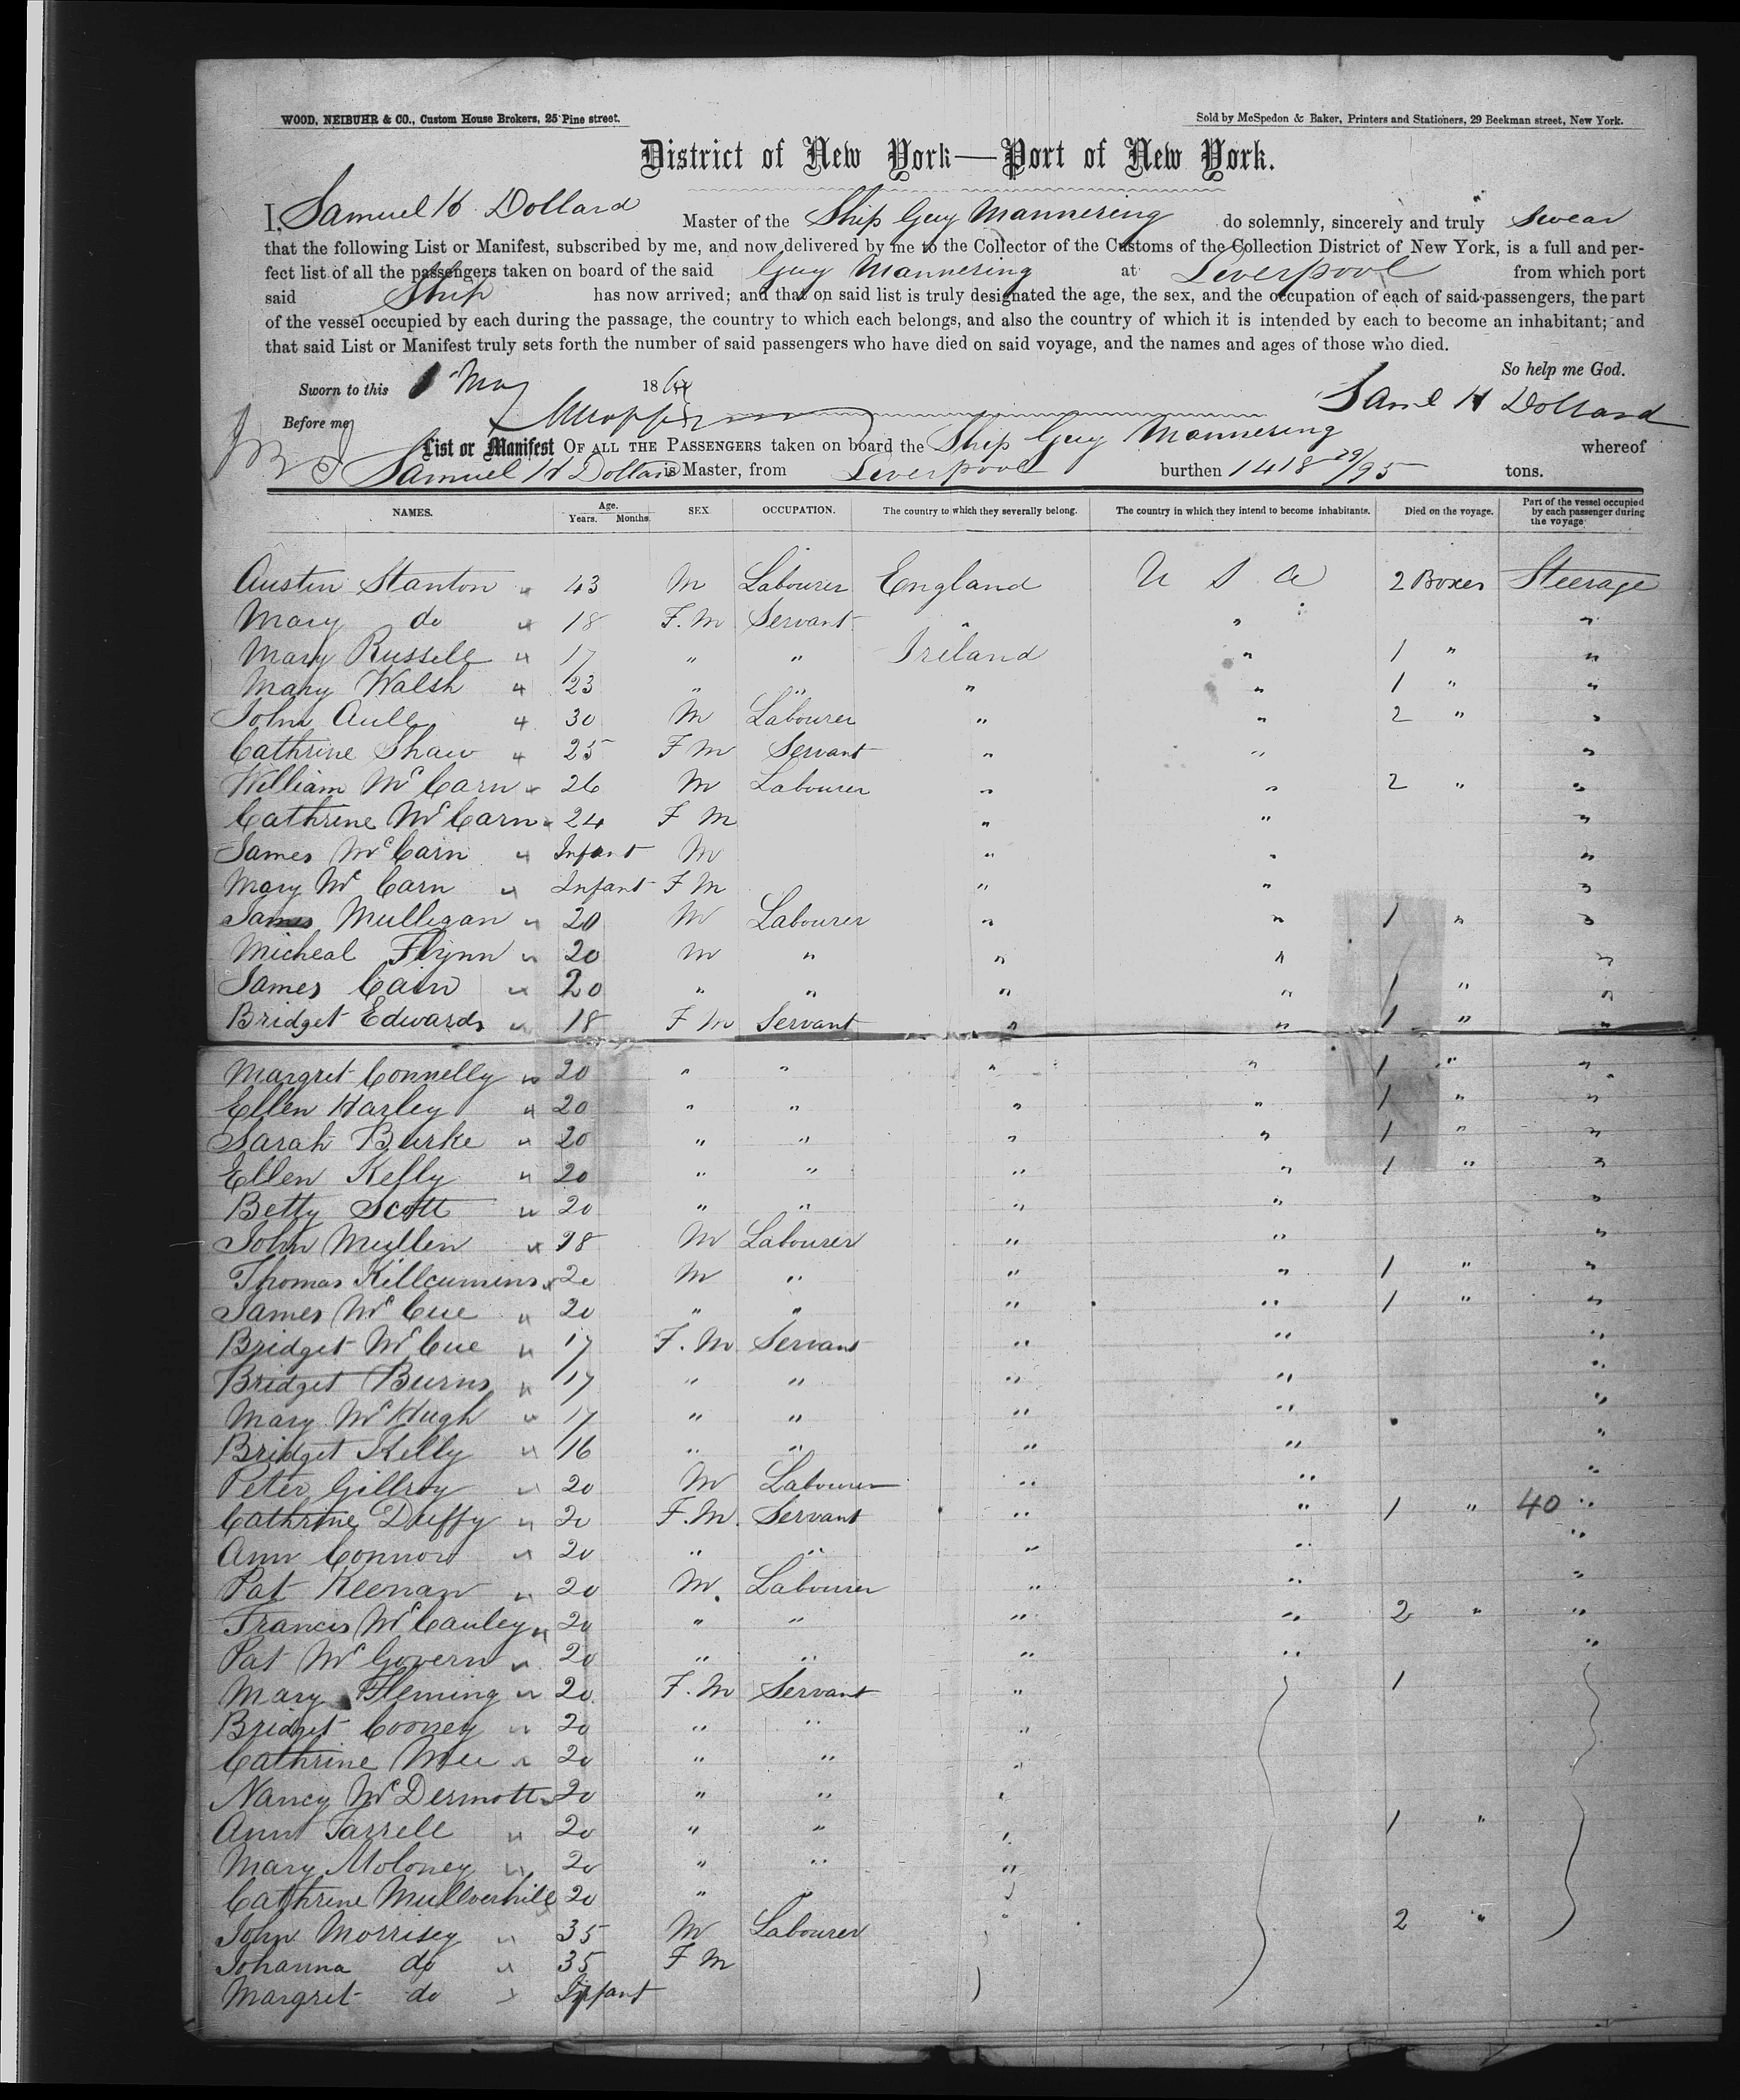 WOOD, NEIBUHR & CO., Custom House Brokers, 25 Pine street.
Sold by McSpedon & Baker, Printers and Stationers, 29 Beekman street, New York.
District of New York—Port of New York.
I, Samuel H Dollard Master of the Ship Guy Mannering do solemnly, sincerely and truly swear
that the following List or Manifest, subscribed by me, and now delivered by me to the Collector of the Customs of the Collection District of New York, is a full and per-
fect list of all the passengers taken on board of the said Guy Mannering at Liverpool from which port
said Ship has now arrived; and that on said list is truly designated the age, the sex, and the occupation of each of said passengers, the part
of the vessel occupied by each during the passage, the country to which each belongs, and also the country of which it is intended by each to become an inhabitant; and
that said List or Manifest truly sets forth the number of said passengers who have died on said voyage, and the names and ages of those who died.
So help me God.
Sworn to this May 186
Saml H Dollard
Before me
List or Manifest OF ALL THE PASSENGERS taken on board the Ship Guy Mannering whereof
Samuel H Dollard is Master, from Liverpool burthen 1418 29/95 tons.
NAMES. Age. Years. Months. SEX. OCCUPATION. The country to which they severally belong. The country in which they intend to become inhabitants. Died on the voyage. Part of the vessel occupied by each passenger during the voyage
Austin Stanton 43 M Labourer England U S A 2 Boxes Steerage
Mary do 18 F.M Servant " " "
Mary Russell 17 " " Ireland " 1 " "
Mary Walsh 23 " " " " 1 " "
John 30 M Labourer " " 2 " "
Cathrine Shaw 25 F M Servant " " "
William McCarn 26 M Labourer " " 2 " "
Cathrine McCarn 24 F M " " "
James McCarn Infant M " " "
Mary McCarn Infant F M " " "
James Mulligan 20 M Labourer " " 1 " "
Micheal Flynn 20 M " " " "
James Cain 20 " " " " 1 " "
Bridget Edwards 18 F M Servant " " 1 " "
Margret Connelly 20 " " " " 1 " "
Ellen Harley 20 " " " " 1 " "
Sarah Burke 20 " " " " 1 " "
Ellen Kelly 20 " " " " 1 " "
Betty Scott 20 " " " " "
John Mullen M Labourer " " "
Thomas Killcumins 20 M " " " 1 " "
James McCue 20 " " " " 1 " "
Bridget McCue 17 F.M Servant " " "
Bridget Burns 17 " " " " "
Mary McHugh 17 " " " " "
Bridget Kelly 16 " " " " "
Peter Gillroy 20 M Labourer " " "
Cathrine Duffy 20 F.M. Servant " " 1 " 40 "
Ann Connor 20 " " " " "
Pat Keenan 20 M Labourer " " "
Francis McCauley 20 " " " " 2 " "
Pat McGovern 20 " " " " "
Mary Fleming 20 F.M Servant " 1
Bridget Cooney 20 " " "
Cathrine 20 " " "
Nancy McDermott 20 " " "
Ann Farrell 20 " " " 1 "
Mary Moloney 20 " " "
Cathrine 20 " "
John Morrisey 35 M Labourer 2 "
Johanna do 35 F M
Margret do Infant